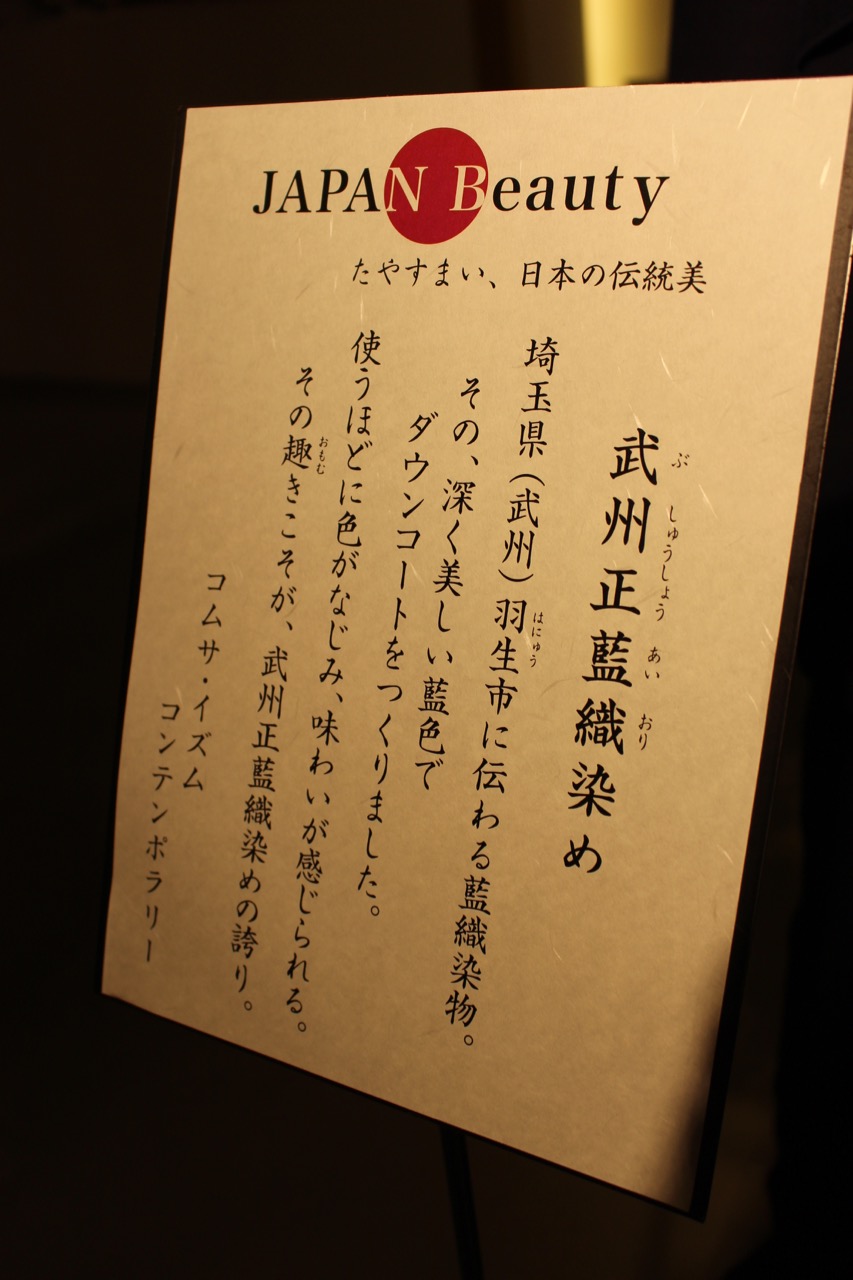 JAPAN Beauty
たやすまい、日本の伝統美
武州正藍織染め
ぶ しゅうしょう あい おり
埼玉県(武州)羽生市に伝わる藍織染物。
はにゅう
その、深く美しい藍色で
ダウンコートをつくりました。
使うほどに色がなじみ、味わいが感じられる。
その趣きこそが、武州正藍織染めの誇り。
おもむ
コムサ・イズム
コンテンポラリー